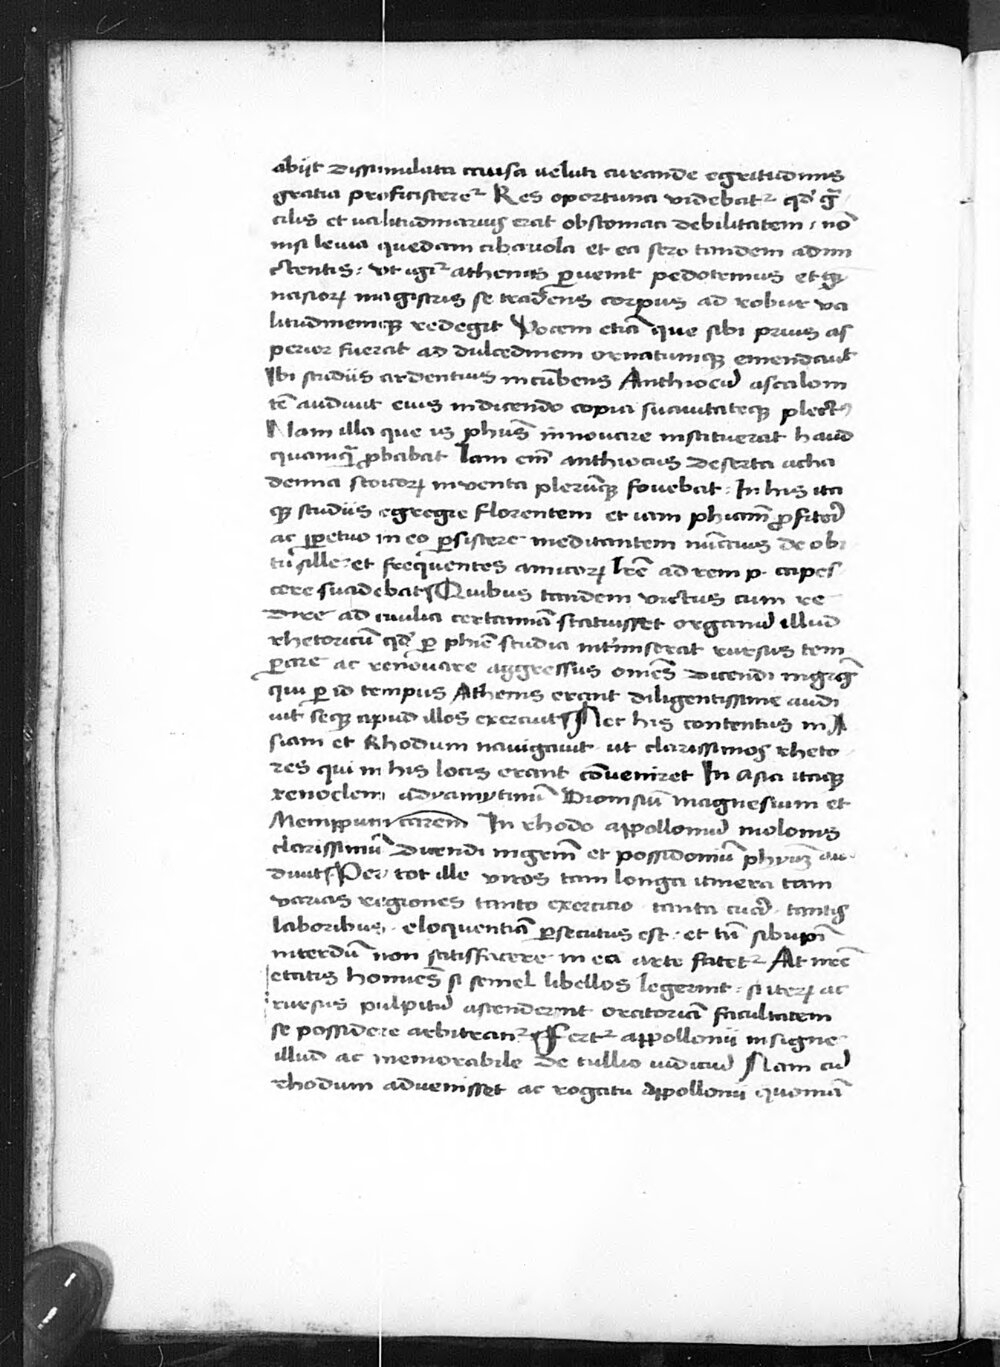 abijt dissimulata causa veluti curande egritudinis
gratia proficisceret᷑ Res oportuna videbat᷑ qd' grã
cilis et valitudinarius erat ob stomaci debilitatem, nõ
nisi levia quedam cibariola et ea sero tandem admi
ctentis: Ut igit᷑ athenas ꝑvenit pedotemius et gy
nasioꝝ magistris se tradens corpus ad robur va
litudinemqꝫ redegit Vocem etiã que sibi prius as
perior fuerat ad dulcedinem ornatumqꝫ emendavit
Ibi studiis ardentius incũbens Anthiocũ ascaloni
tẽ audivit eius in dicendo copia suavitateqꝫ plectꝰ
Nam illa que is phũs innovare instituerat haud
quamqꝫ ꝓbabat Iam em̃ anthiocus deserta acha
demia stoicoꝝ inventa plerũqꝫ fovebat. In his ita
qꝫ studiis egregie florentem et iam phiam̃ ꝓfiteri
ac ꝑpetuo in eo ꝑsistere meditantem nũctius de obi
tu sille. et frequentes amicoꝝ lrẽ ad rem p. capes
cere suadebat Quibus tandem victus cum re
dire ad civilia certamiã statuisset organũ illud
rhetoricũ qd' ꝑ phiẽ studia int̃miserat rursus tem
ꝑare ac renovare aggressus omẽs dicendi mg̃ros
qui ꝑ id tempus Athenis erant diligentissime audi
vit seqꝫ apud illos exercuit Nec his contentus in A
siam et Rhodum navigavit. ut clarissimos rheto
res qui in his locis erant cõveniret In asia itaqꝫ
xenoclem adramytinũ Dionisiũ magnesium et
Menippum carem In rhodo appollonium molonis
clarissimũ dicendi mgrm̃ et possidoniũ phum̃ au
divit Per tot ille viros tam longa itinera tam
varias regiones tanto exercitio. tanta cura. tantis
laboribus. eloquentiã ꝑsecutus est. et tũ sibiipsi
interdũ non satisfacere in ea arte fatet᷑ At nr̃e
etatis homĩes si semel libellos legerint. si iteꝝ ac
rursus pulpitũ ascenderint oratoriã facultatem
se possidere arbitrant᷑ Fert᷑ appollonii insigne
illud ac memorabile de tullio iudiciũ Nam cũ
rhodum advenisset ac rogatu appollonii quoniã